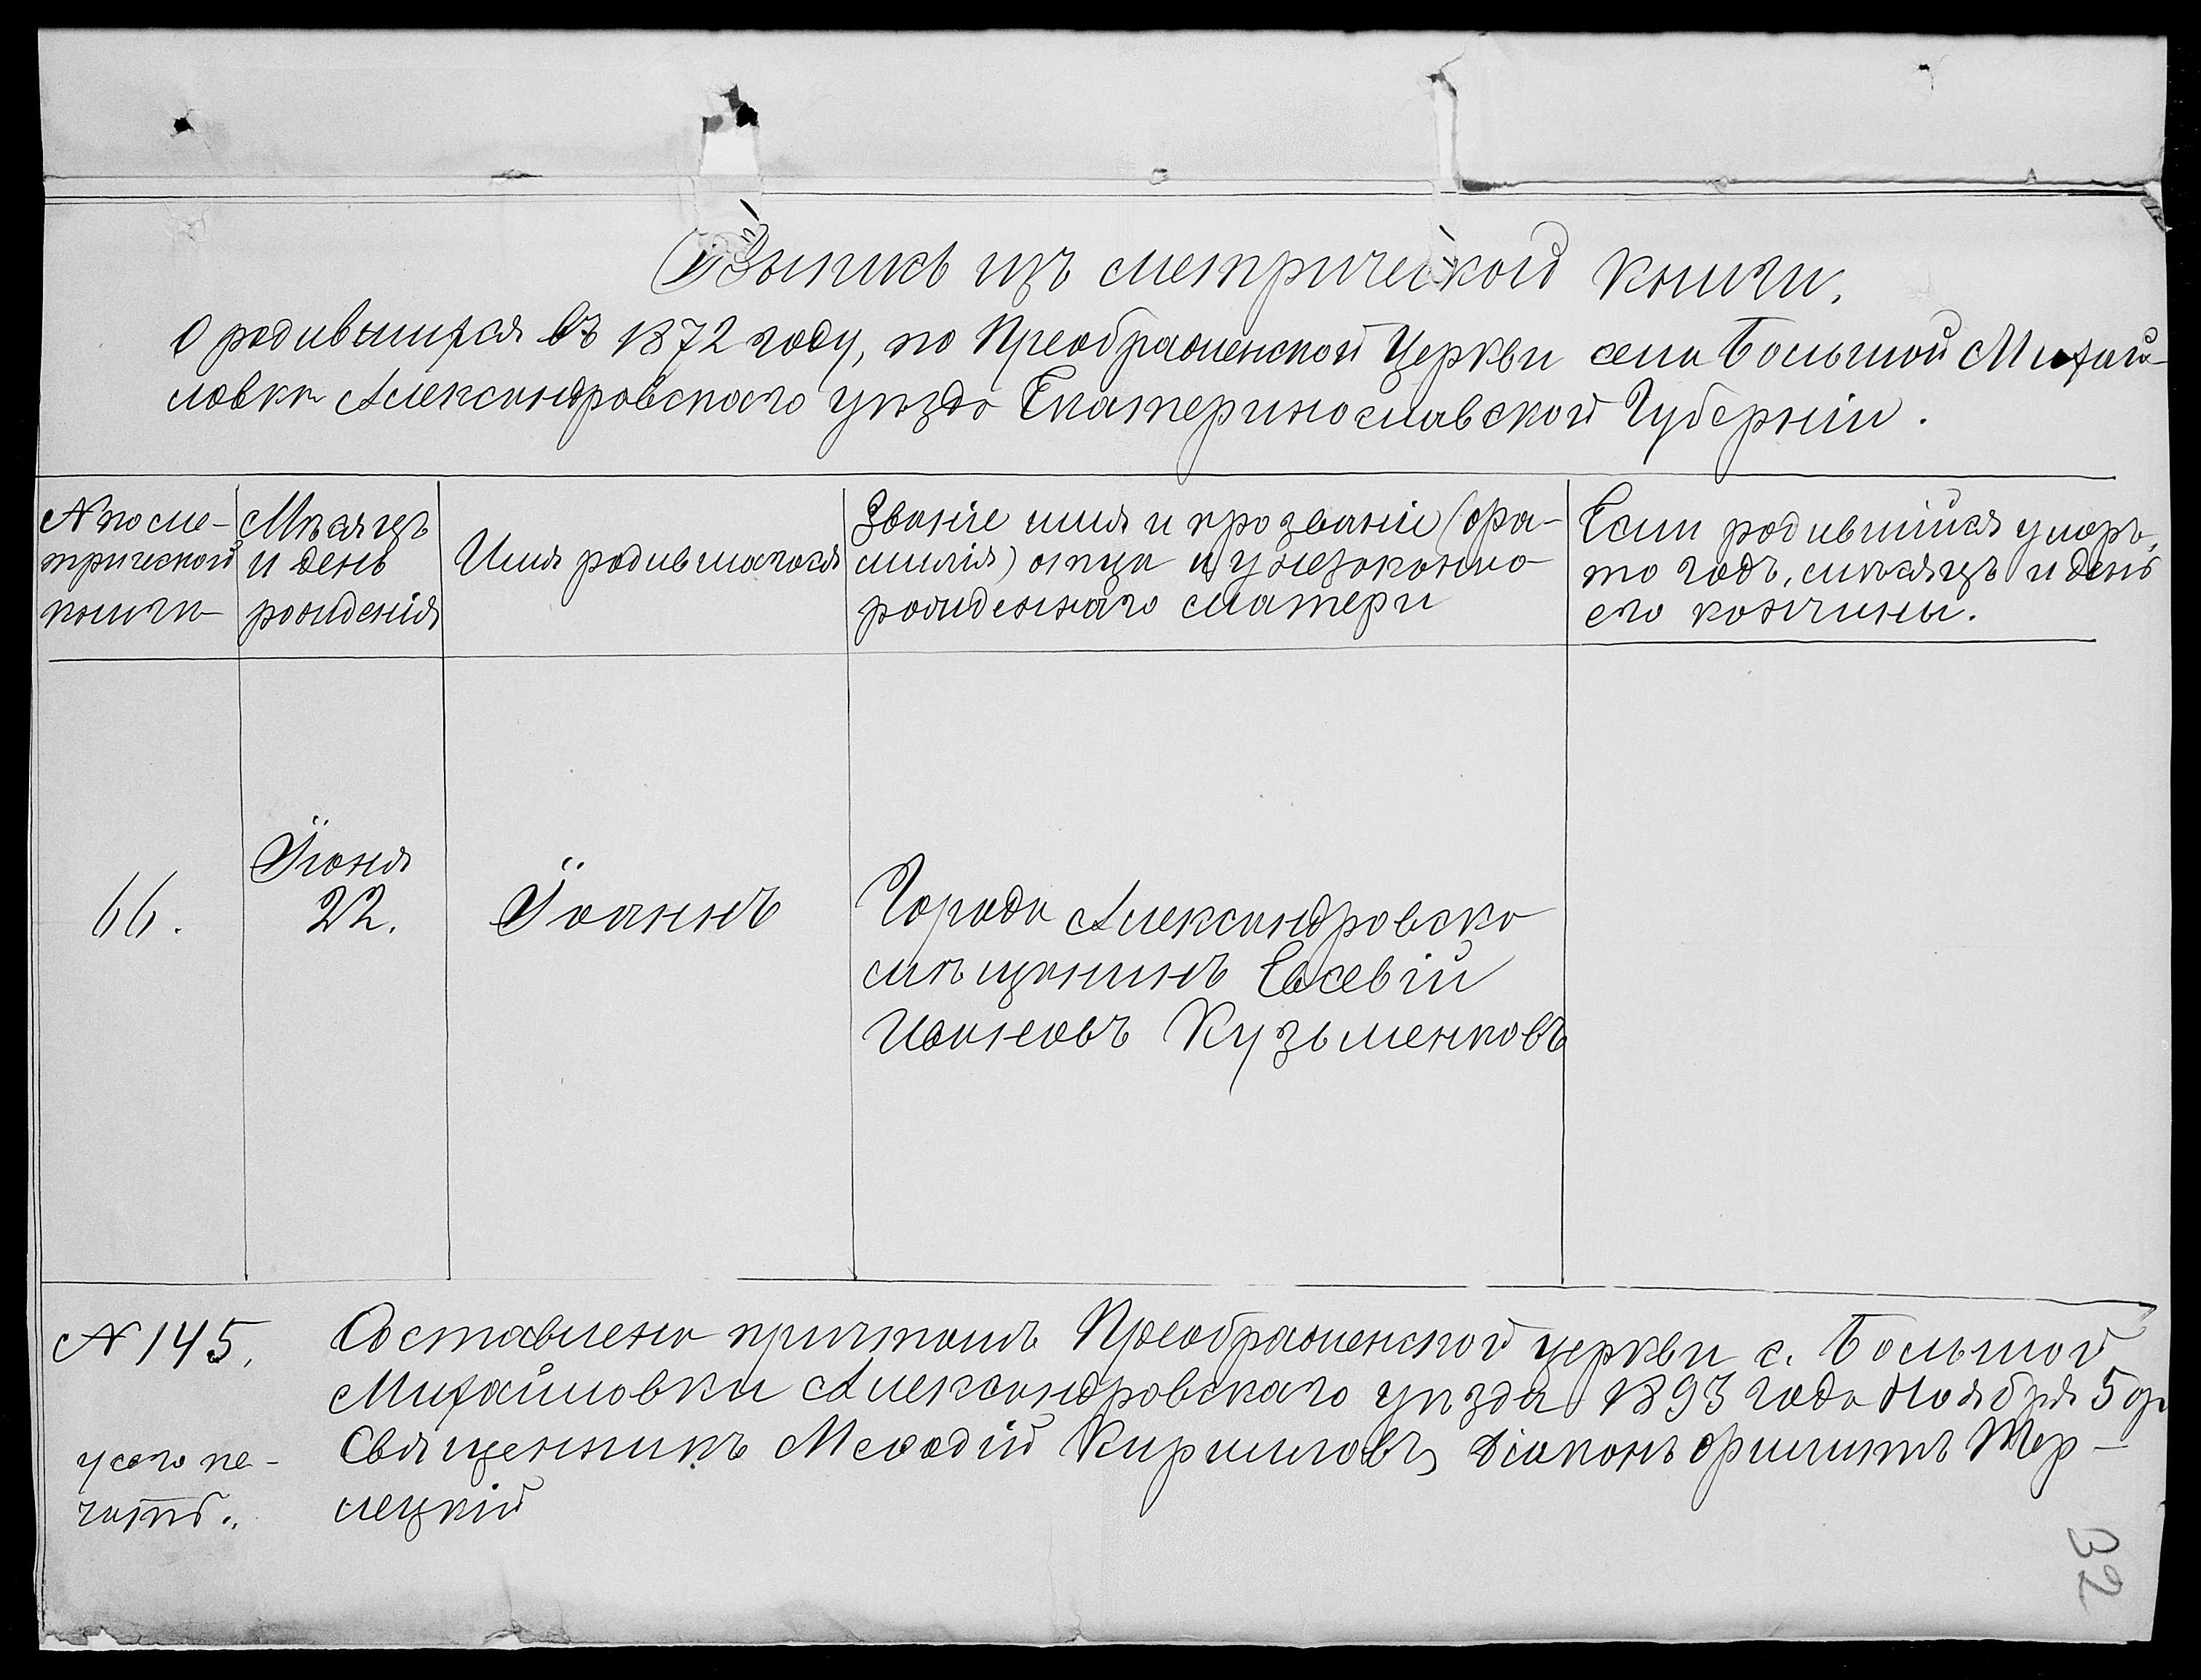 Выпись изъ метрической книги,
О родившихся въ 1872 году, по Преображенской Церкви села Большой Михай-
ловки Александровскаго уѣзда Екатеринославской Губерніи.
№ по ме-
трической
книги
Мѣсяцъ
и день
рожденія
Имя родившагося
Званіе имя и прозваніе (фа-
милія) отца и у незаконно-
рожденнаго матери
Если родившійся умеръ,
то годъ, мѣсяцъ и день
его кончины.
66.
Іюня
22.
Іоаннъ
Города Александровска
мѣщанинъ Евсевій
Іоанновъ Кузьменковъ
№ 145.
Составлена причтомъ Преображенской церкви с. Большой
Михайловки Александровскаго уѣзда 1893 года Ноября 5 д.
Священникъ Меѳодій Кирилловъ, Діаконъ Филиппъ Тер-
лецкій
у сего пе-
чать.
32